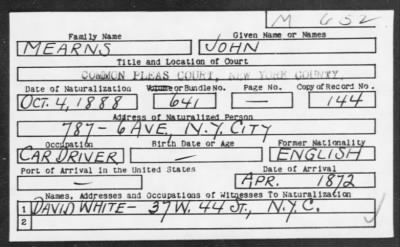 M 652
Family Name Given Name or Names
MEARNS JOHN
Title and Location of Court
COMMON PLEAS COURT, NEW YORK COUNTY.
Date of Naturalization Volume or Bundle No. Page No. Copy of Record No.
OCT. 4, 1888 641 — 144
Address of Naturalized Person
787 - 6 AVE, N.Y. CITY
Occupation Birth Date or Age Former Nationality
CAR DRIVER — ENGLISH
Port of Arrival in the United States Date of Arrival
— APR. 1872
Names, Addresses and Occupations of Witnesses To Naturalization
1 DAVID WHITE - 37 W. 44 ST., N.Y.C.
2